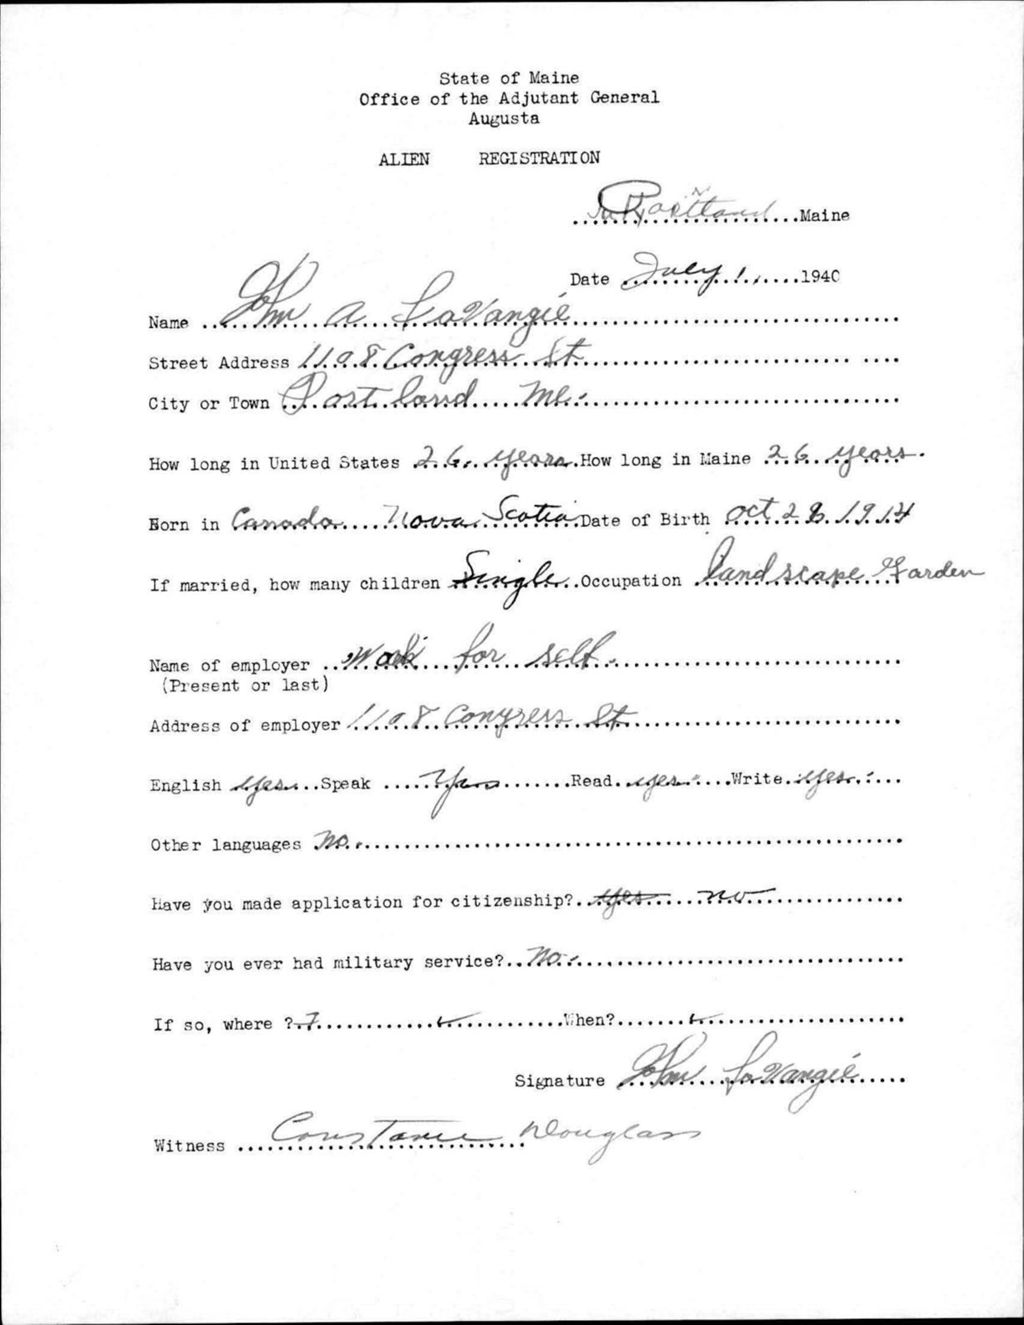 State of Maine
Office of the Adjutant General
Augusta
ALIEN REGISTRATION
Portland Maine
Date July 1, 1940
Name Wm A. LaVangie
Street Address 1108 Congress St
City or Town Portland Me.
How long in United States 26 years How long in Maine 26 years
Born in Canada Nova Scotia Date of Birth Oct 28 1914
If married, how many children Single Occupation landscape Garden
Name of employer Work for self.
(Present or last)
Address of employer 1108 Congress St
English yes Speak Yes Read yes Write yes
Other languages No.
Have you made application for citizenship? yes no
Have you ever had military service? No.
If so, where ? When?
Signature Wm LaVangie
Witness Constance Douglass